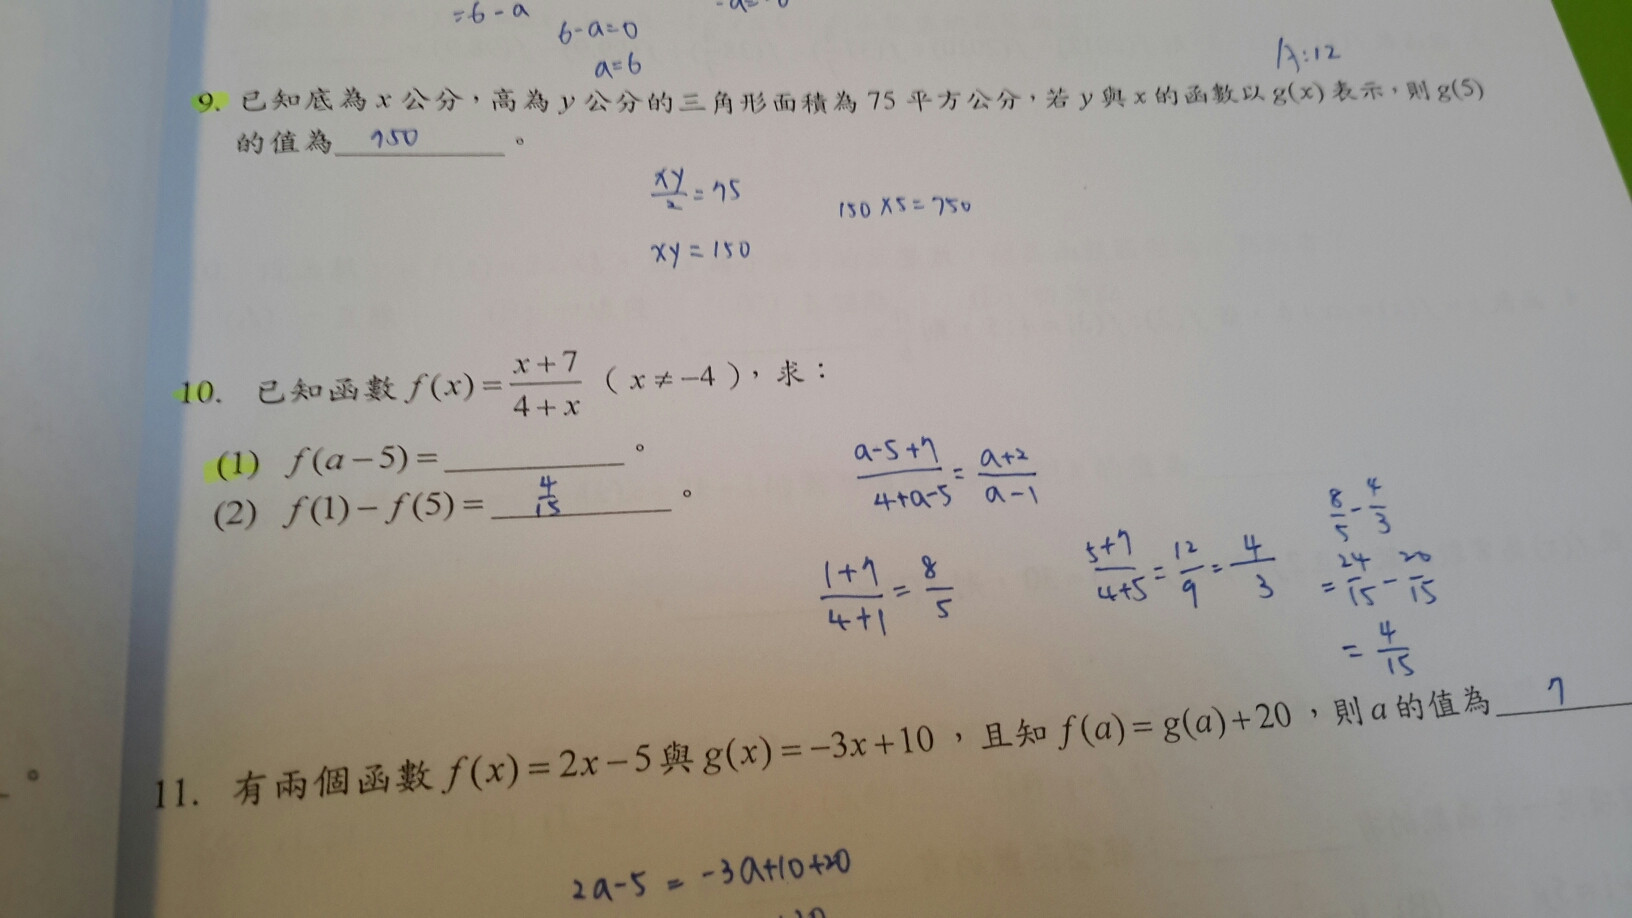 =6-a
6-a=0
a=6
9. 已知底為 x 公分，高為 y 公分的三角形面積為 75 平方公分，若 y 與 x 的函數以 g(x) 表示，則 g(5)
的值為 750 。
xy/2 = 75
150×5=750
xy = 150
10. 已知函數 f(x) = (x+7)/(4+x) （ x ≠ -4 ），求：
(1) f(a-5) = ________ 。
(a-5+7)/(4+a-5) = (a+2)/(a-1)
(2) f(1) - f(5) = 4/15 。
(1+7)/(4+1) = 8/5
(5+7)/(4+5) = 12/9 = 4/3
8/5 - 4/3
= 24/15 - 20/15
= 4/15
11. 有兩個函數 f(x) = 2x-5 與 g(x) = -3x+10 ，且知 f(a) = g(a)+20 ，則 a 的值為 7
2a-5 = -3a+10+20